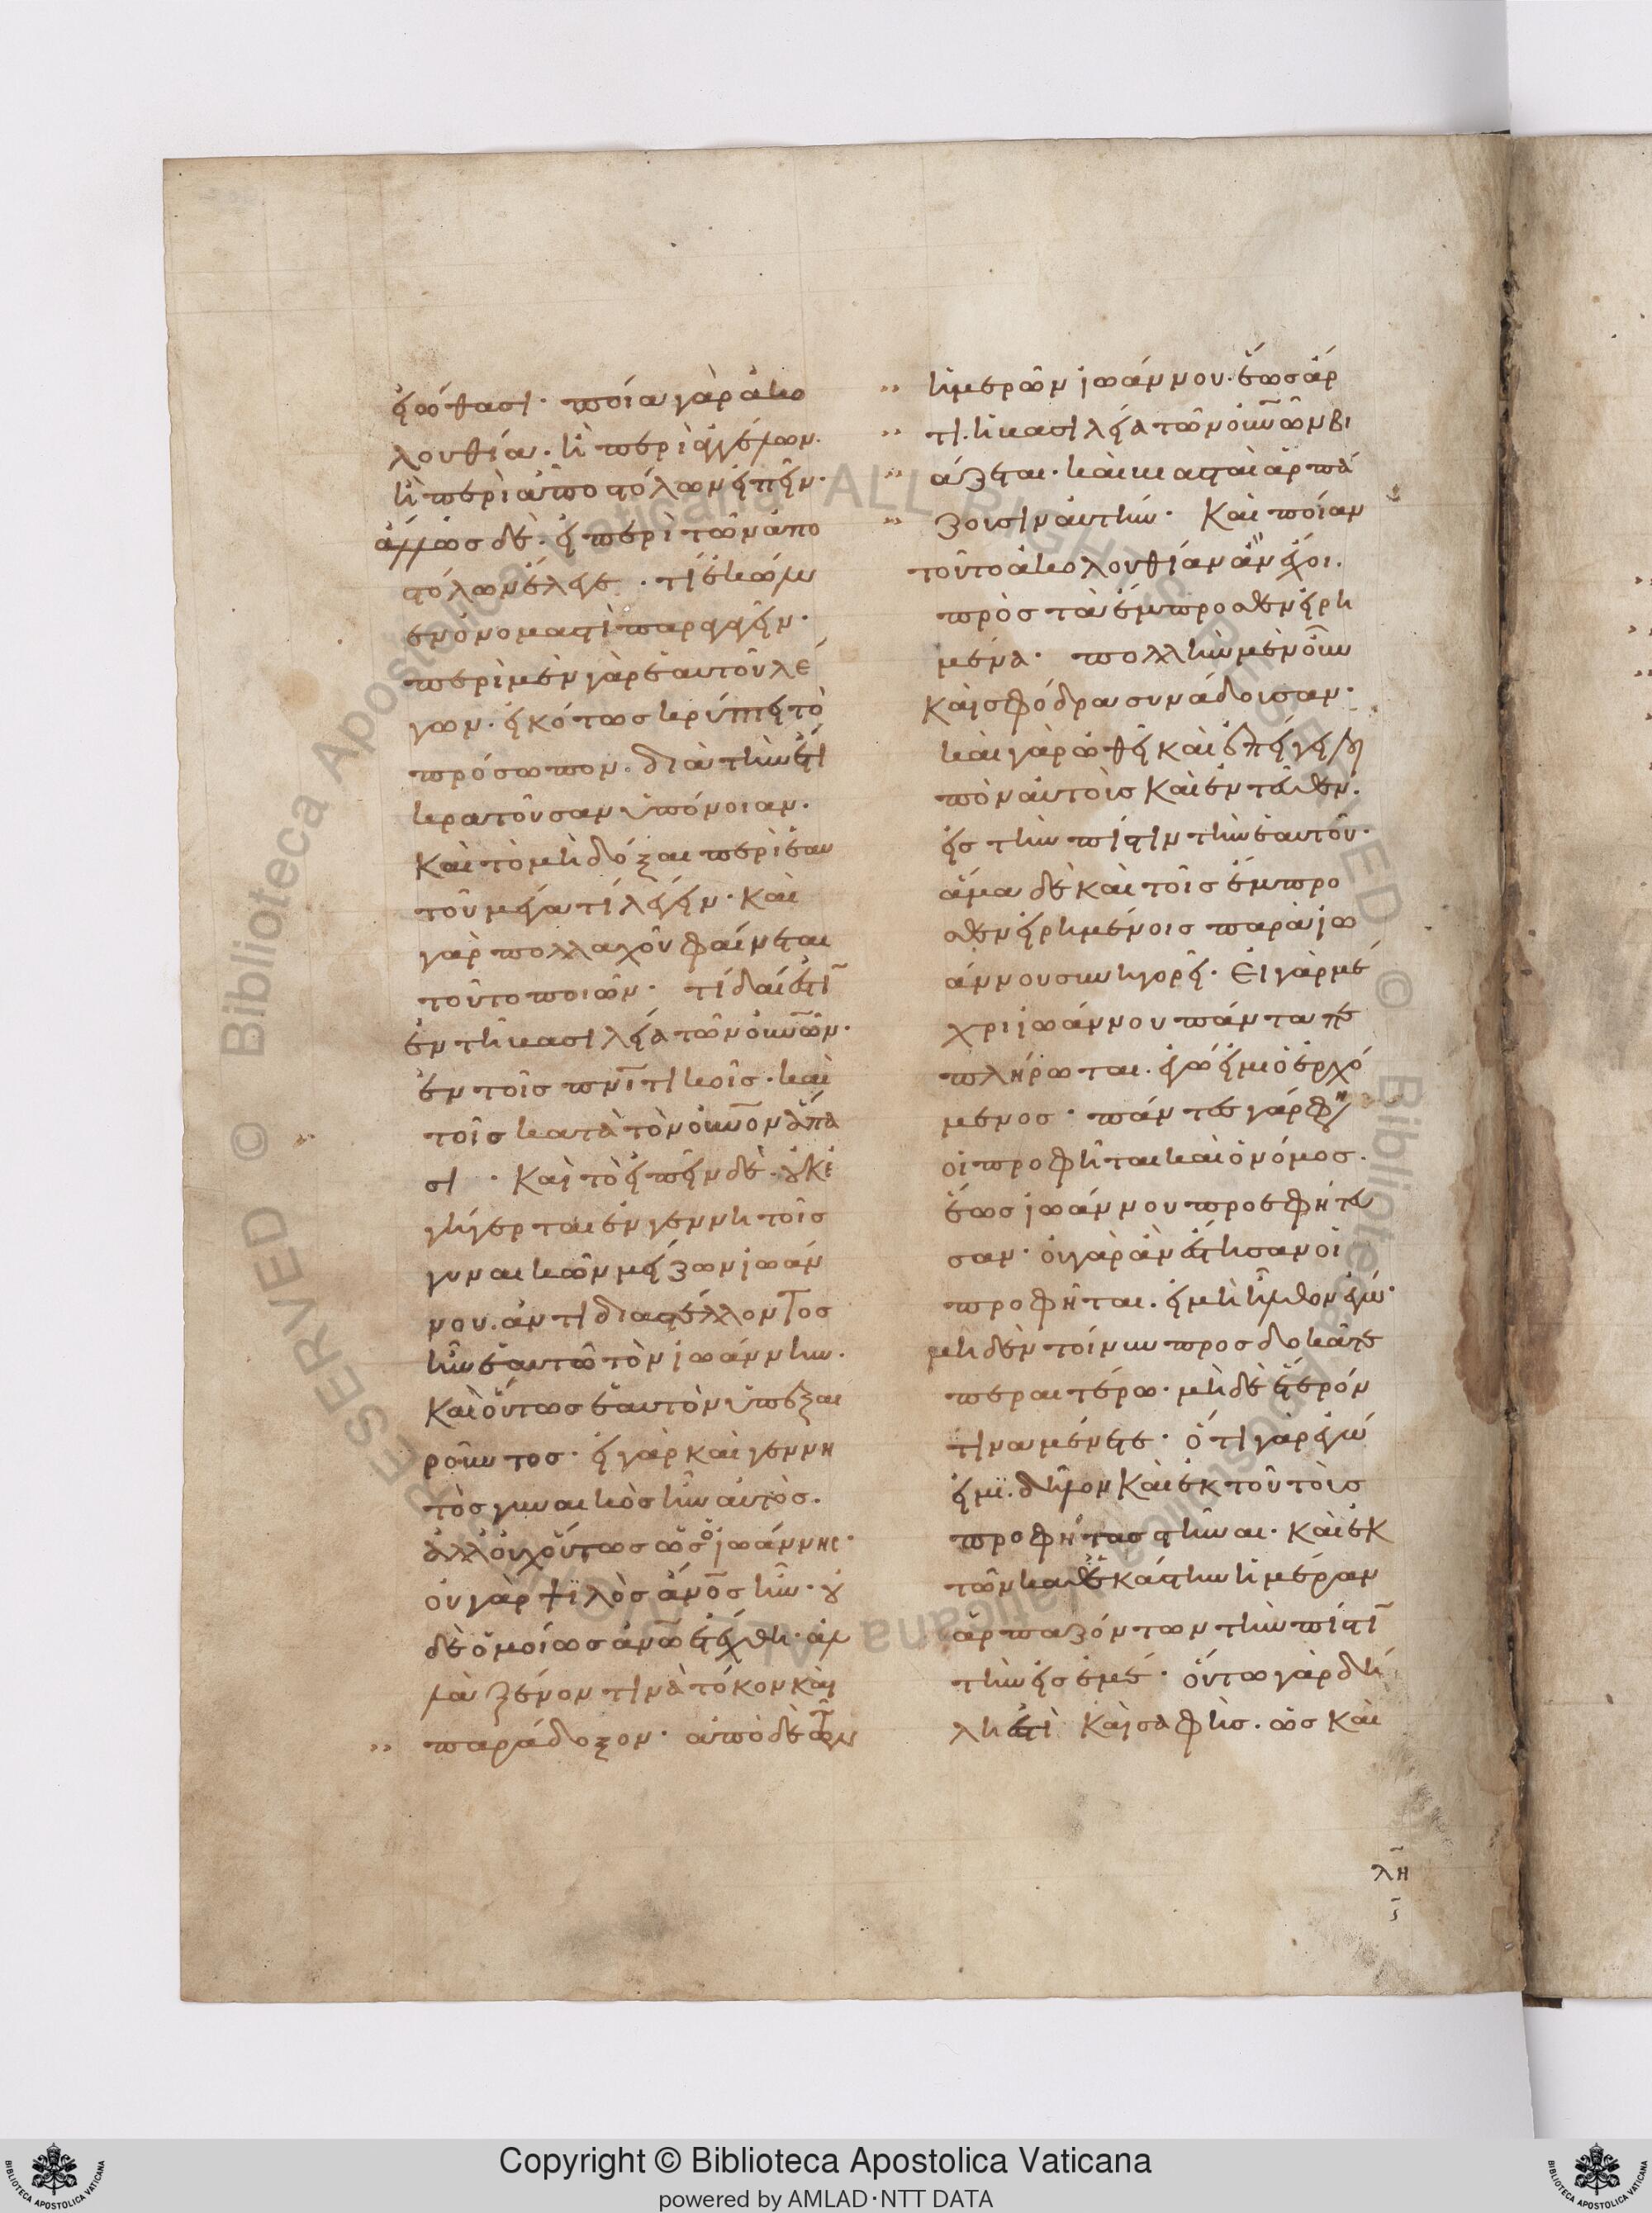 εἰώθασι· ποία γὰρ ἀκο
λουθία. ἢ περὶ ἀγγέλων.
ἢ περὶ ἀποστόλων εἰπεῖν·
ἄλλως δὲ. εἰ περὶ τῶν ἀπο
στόλων ἔλεγε. τί ἐκώλυ
εν ὀνομαστὶ παραστῆσειν·
περὶ μὲν γὰρ ἑαυτοῦ λέ
γων. εἰκότως κρύπτει τὸ
πρόσωπον. διὰ τὴν ἔτι
κρατοῦσαν ὑπόνοιαν.
Καὶ τὸ μὴ δόξαι περὶ ἑαυ
τοῦ μέγα τί λέγειν· καὶ
γὰρ πολλαχοῦ φαίνεται
τοῦτο ποιῶν· τί δαί ἐστῖ
ἐν τῆ βασιλεία τῶν οὐνῶν·
ἐν τοῖς πνῑτικοῖς· καὶ
τοῖς κατὰ τὸν οὐνὸν ἅπα
σι· Καὶ τὸ εἰπεῖν δὲ. οὐκ ἐ
γήγερται ἐν γεννητοῖς
γυναικῶν μείζων ἰωάν
νου. ἀντιδιαστέλλοντος
ἦν ἑαυτῶ τὸν ἰωάννην.
Καὶ οὕτως ἑαυτὸν ὑπεξαι
ροῦντος· εἰ γὰρ καὶ γεννη
τὸς γυναικὸς ἦν αὐτὸς.
ἀλλ οὐχ οὕτως ὡς ὁ ἰωάννης·
οὐ γὰρ ψιλὸς ἄνος ἦν· οὐ
δὲ ὁμοίως ἀνω ἐτέχθη· ἀλ
λὰ ξένον τινὰ τόκον καὶ
" παράδοξον· ἀπὸ δὲ τῶν
" ἡμερῶν ἰωάννου. ἕως ἄρ
" τι. ἡ βασιλεία τῶν οὐνῶν βι
" άζεται. καὶ βιασταὶ ἁρπά
" ζουσιν αὐτήν· Καὶ ποίαν
τοῦτο ἀκολουθίαν ἂν ἔχοι.
πρὸς τὰ ἔμπροσθεν εἰρη
μένα· πολλὴν μὲν οὖν
καὶ σφόδρα συνάδουσαν·
καὶ γὰρ ὠθεῖ καὶ ἐπείγει λοι
πὸν αὐτοὺς καὶ ἐντεῦθεν.
εἰς τὴν πίστιν τὴν ἑαυτοῦ·
ἅμα δὲ καὶ τοῖς ἔμπρο
σθεν εἰρημένοις παρὰ ἰω
άννου συνηγορεῖ· Εἰ γὰρ μέ
χρι ἰωάννου πάντα πε
πλήρωται. ἐγώ εἰμι ὁ ἐρχό
μενος· πάντες γάρ φη
οἱ προφῆται καὶ ὁ νόμος.
ἕως ἰωάννου προεφήτευ
σαν· οὐ γὰρ ἂν ἔστησαν οἱ
προφῆται. εἰ μὴ ἦλθον ἐγώ·
μηδὲν τοίνυν προσδοκᾶτε
περαιτέρω· μὴ δὲ ἕτερόν
τινα μένετε· ὅτι γὰρ ἐγώ
εἰμι. δῆλον καὶ ἐκ τοῦ τοὺς
προφήτας στῆναι· καὶ ἐκ
τῶν καθ ἑκάστην ἡμέραν
ἁρπαζόντων τὴν πίστῖ
τὴν εἰς ἐμέ· οὕτω γὰρ δή
λη ἐστὶ καὶ σαφὴς. ὡς καὶ
λη
ς
Copyright © Biblioteca Apostolica Vaticana
powered by AMLAD·NTT DATA